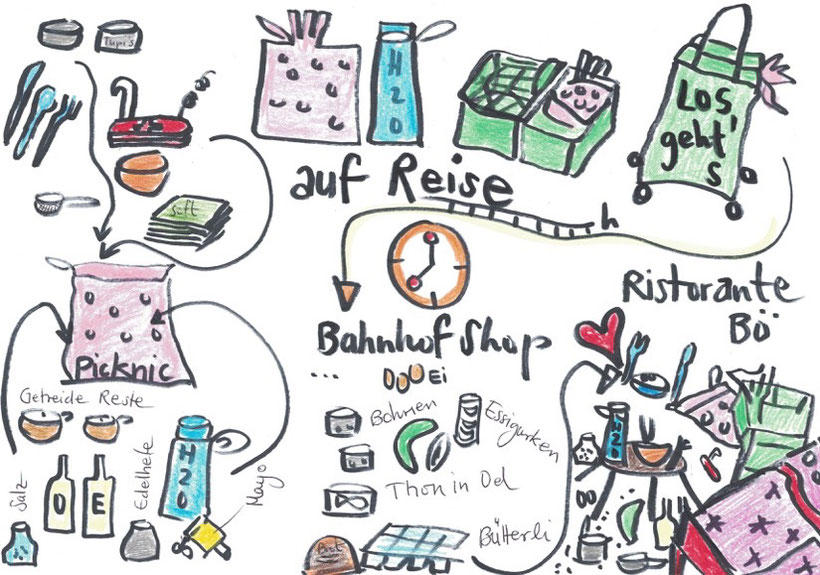 Tupi's
H2O
Los
geht'
s
auf Reise
h
Saft
Ristorante
Bö
Picknic
Bahnhof Shop
...
Ei
Getreide Reste
Bohnen
Essigurken
Salz
O
E
Edelhefe
H2O
Mayo
Thon in Oel
H2O
Brot
Bütterli